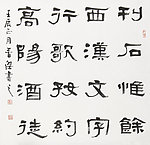 石惟餘
西漢文字
行歌約
高陽酒徒
壬辰月